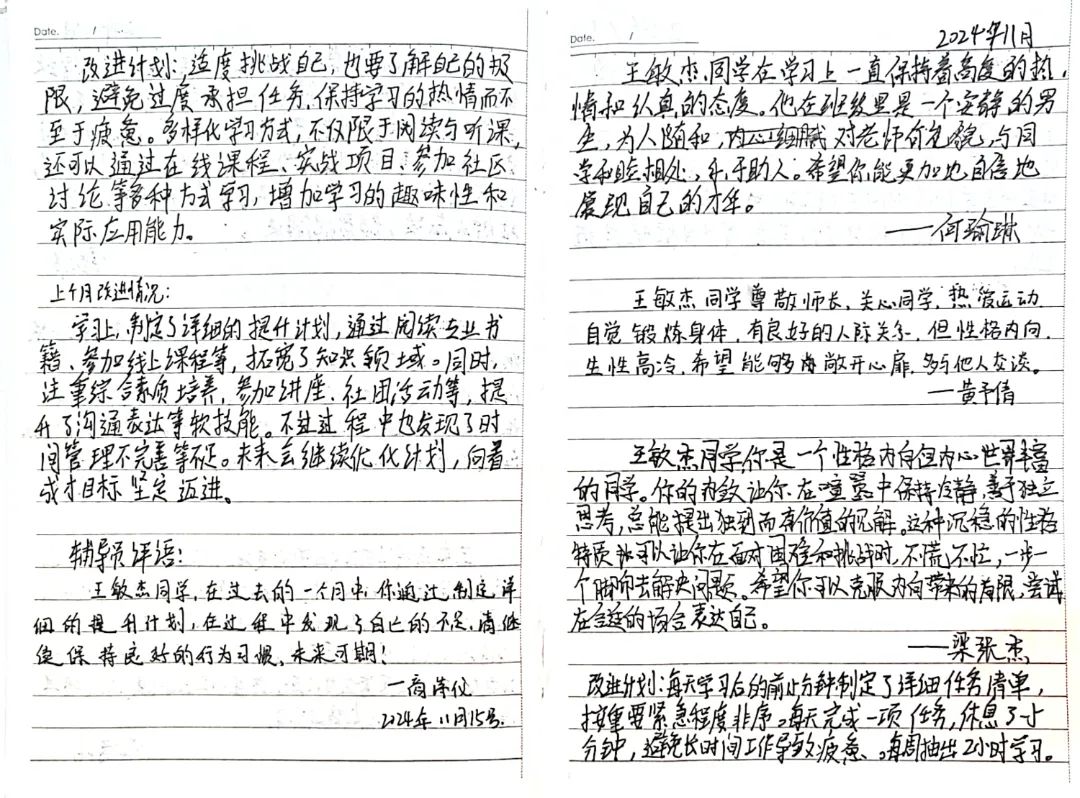 Date. /
改进计划:适度挑战自己,也要了解自己的极
限,避免过度承担任务,保持学习的热情而不
至于疲惫。多样化学习方式,不仅限于阅读与听课,
还可以通过在线课程、实战项目、参加社区
讨论等多种方式学习,增加学习的趣味性和
实际应用能力。
上个月改进情况:
学习上,制定了详细的提升计划,通过阅读专业书
籍、参加线上课程等,拓宽了知识领域。同时,
注重综合素质培养,参加讲座、社团活动等,提
升了沟通表达等软技能。不过过程中也发现了时
间管理不完善等不足。未来会继续优化计划,向着
成才目标坚定迈进。
辅导员评语:
王敏杰同学,在过去的一个月中,你通过制定详
细的提升计划,在过程中发现了自己的不足,请继
续保持良好的行为习惯,未来可期!
2024年11月15号.
Date. /
2024年11月
王敏杰同学在学习上一直保持着高度的热
情和认真的态度。他在班级里是一个安静的男
生,为人随和,内心细腻,对老师有礼貌,与同
学和睦相处,乐于助人。希望你能更加地自信地
展现自己的才华。
——何瑜琳
王敏杰同学尊敬师长、关心同学,热爱运动
自觉锻炼身体,有良好的人际关系,但性格内向,
生性高冷,希望能够敞开心扉,多与他人交谈。
—黄予倩
王敏杰同学,你是一个性格内向但内心世界丰富
的同学。你的内敛让你在喧嚣中保持冷静,善于独立
思考,总能提出独到而有价值的见解。这种沉稳的性格
特质可以让你在面对困难和挑战时,不慌不忙,一步一
个脚印去解决问题。希望你可以克服内向带来的局限,尝试
在合适的场合表达自己。
——梁张杰
改进计划:每天学习后的前10分钟制定了详细任务清单,
按重要紧急程度排序。每天完成一项任务,休息了小
分钟,避免长时间工作导致疲惫。每周抽出2小时学习。